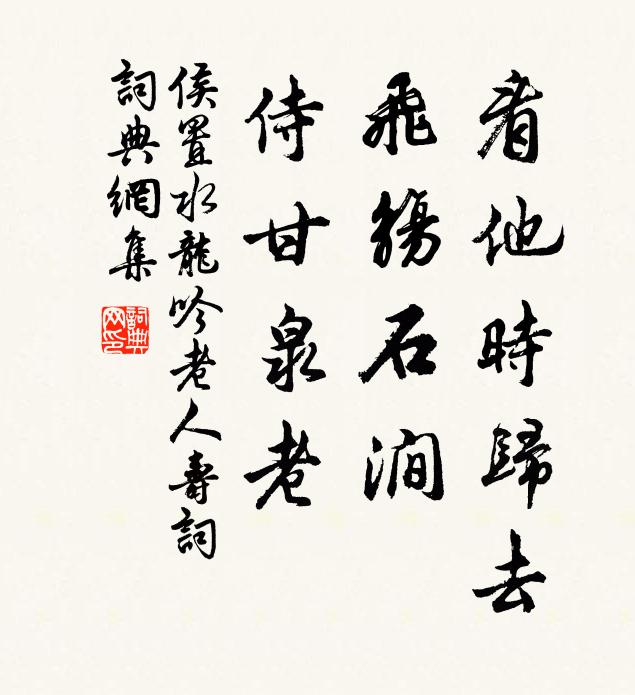 看他時歸去
飛觴石澗
侍甘泉老
侯置水龍吟老人壽詞
詞典網集
詞典
网印